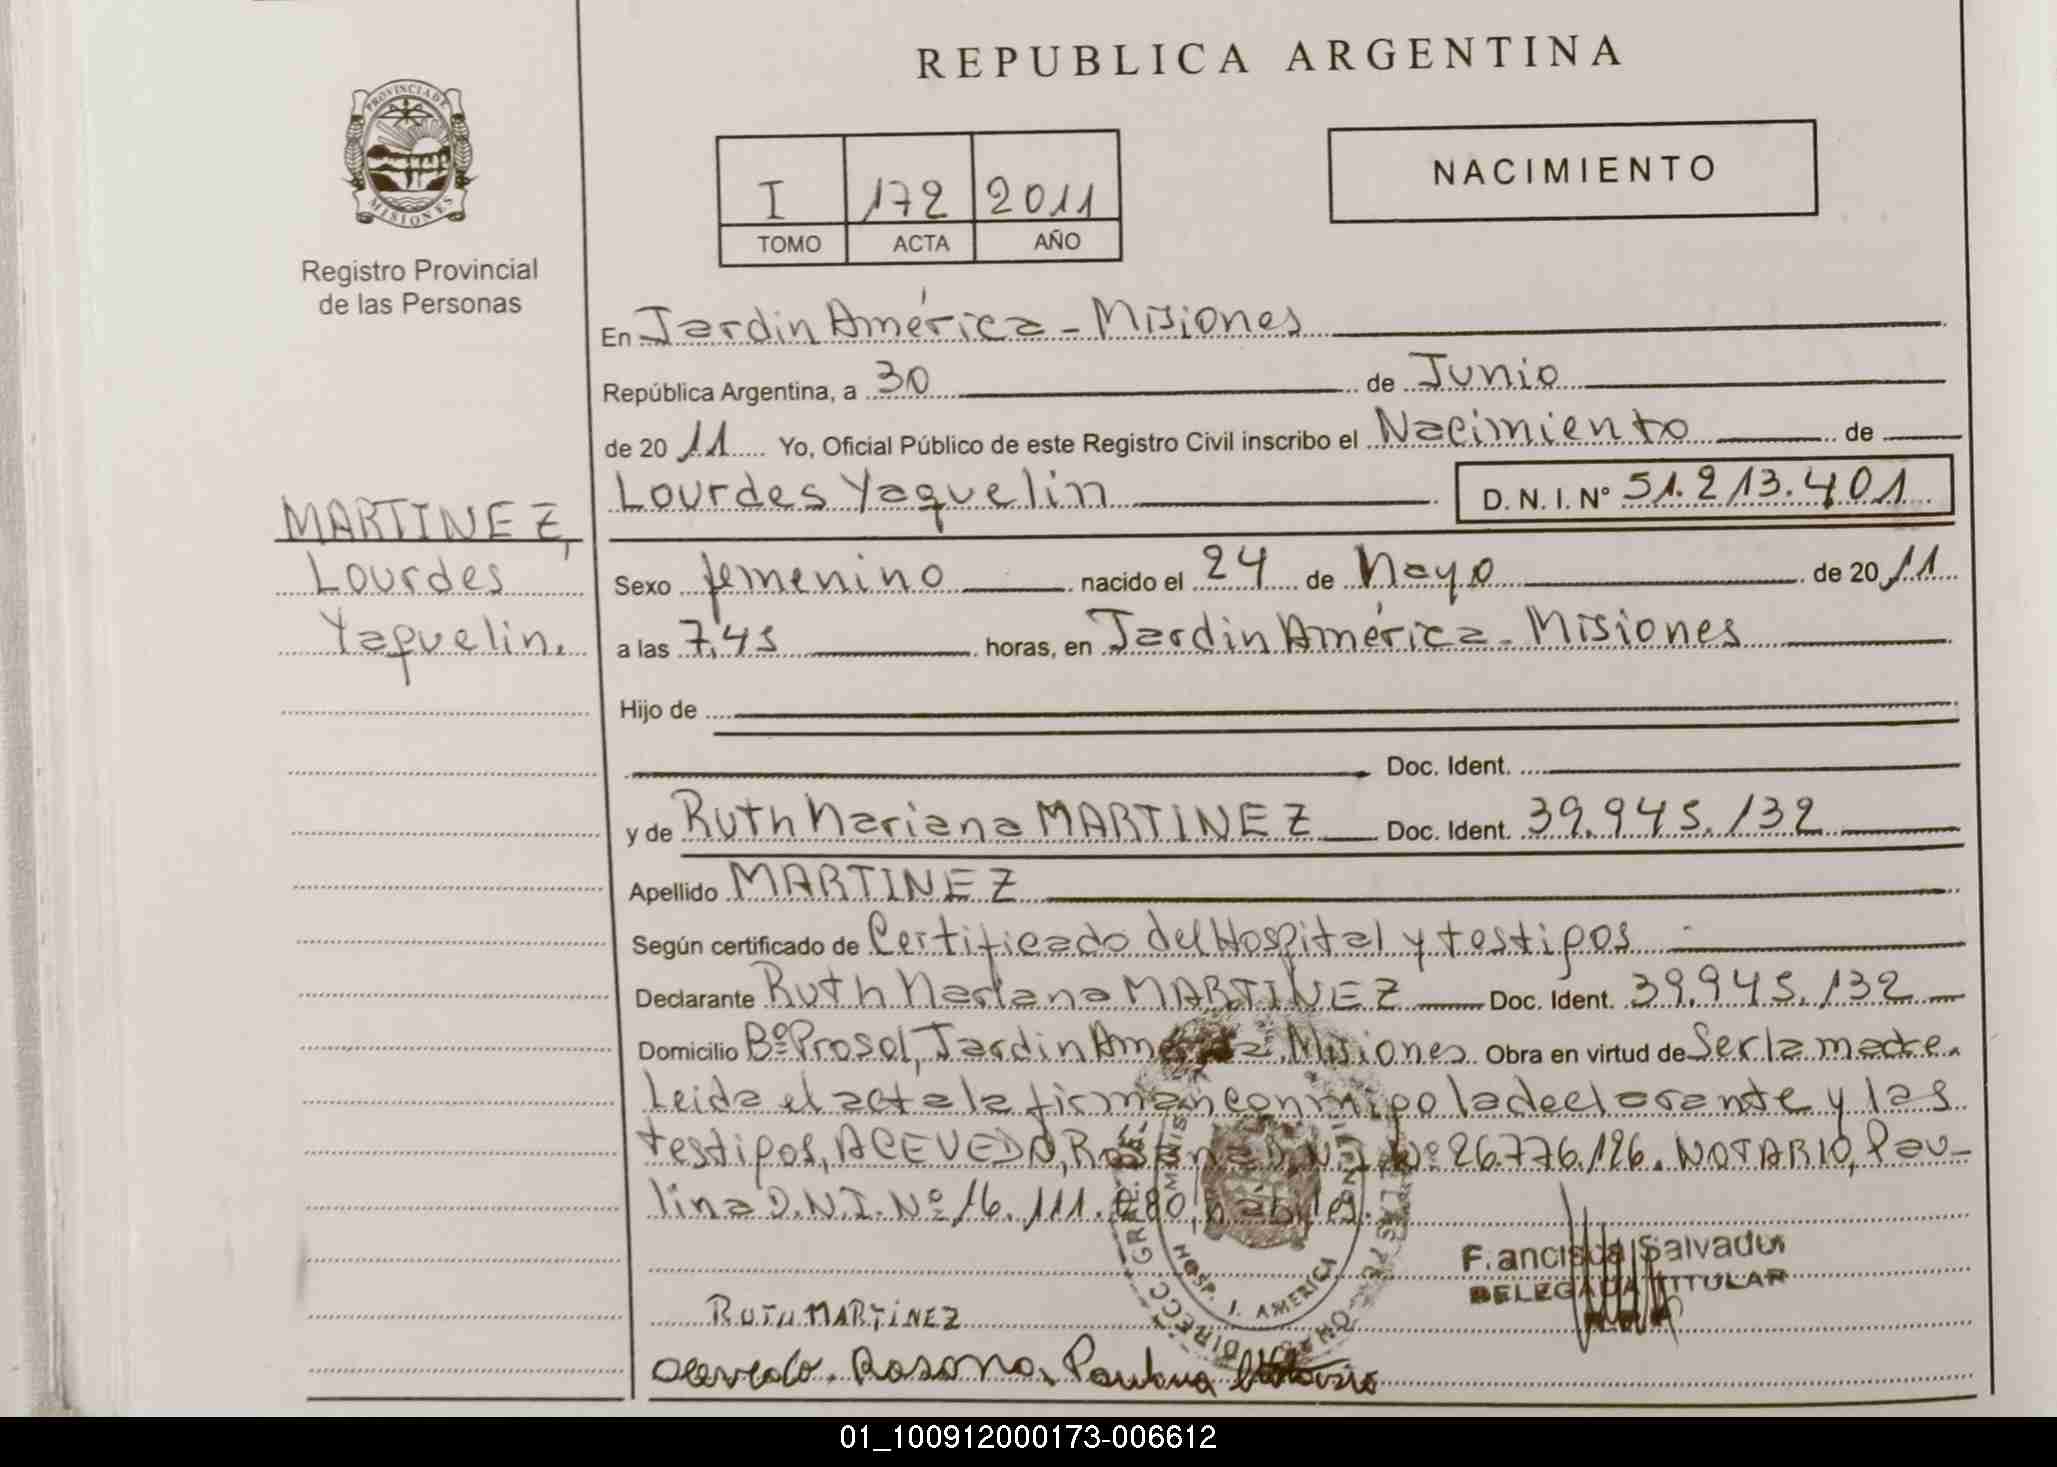 REPUBLICA ARGENTINA
PROVINCIA DE
MISIONES
Registro Provincial
de las Personas
I 172 2011
TOMO ACTA AÑO
NACIMIENTO
En Jardin América - Misiones
República Argentina, a 30 de Junio
de 20 11 Yo, Oficial Público de este Registro Civil inscribo el Nacimiento de
Lourdes Yaquelin D. N. I. N° 51.213.401
MARTINEZ,
Lourdes
Yaquelin.
Sexo femenino nacido el 24 de Mayo de 20 11
a las 7,45 horas, en Jardin América - Misiones
Hijo de
Doc. Ident.
y de Ruth Mariana MARTINEZ Doc. Ident. 39.945.132
Apellido MARTINEZ
Según certificado de Certificado del Hospital y testigos
Declarante Ruth Mariana MARTINEZ Doc. Ident. 39.945.132
Domicilio Bº Prosol, Jardin América Misiones Obra en virtud de Ser la madre.
Leida el acta la firman conmigo la declarante y las
testigos, ACEVEDO, Rosana D.N.I. Nº 26.776.126. NOTARIO, Pau-
lina D.N.I. Nº 16.111.080, hábiles.
HOSP. J. AMERICA
Francisca Salvador
DELEGADA TITULAR
RUTH MARTINEZ
Acevedo. Rosana. Paulina Notario
01_100912000173-006612